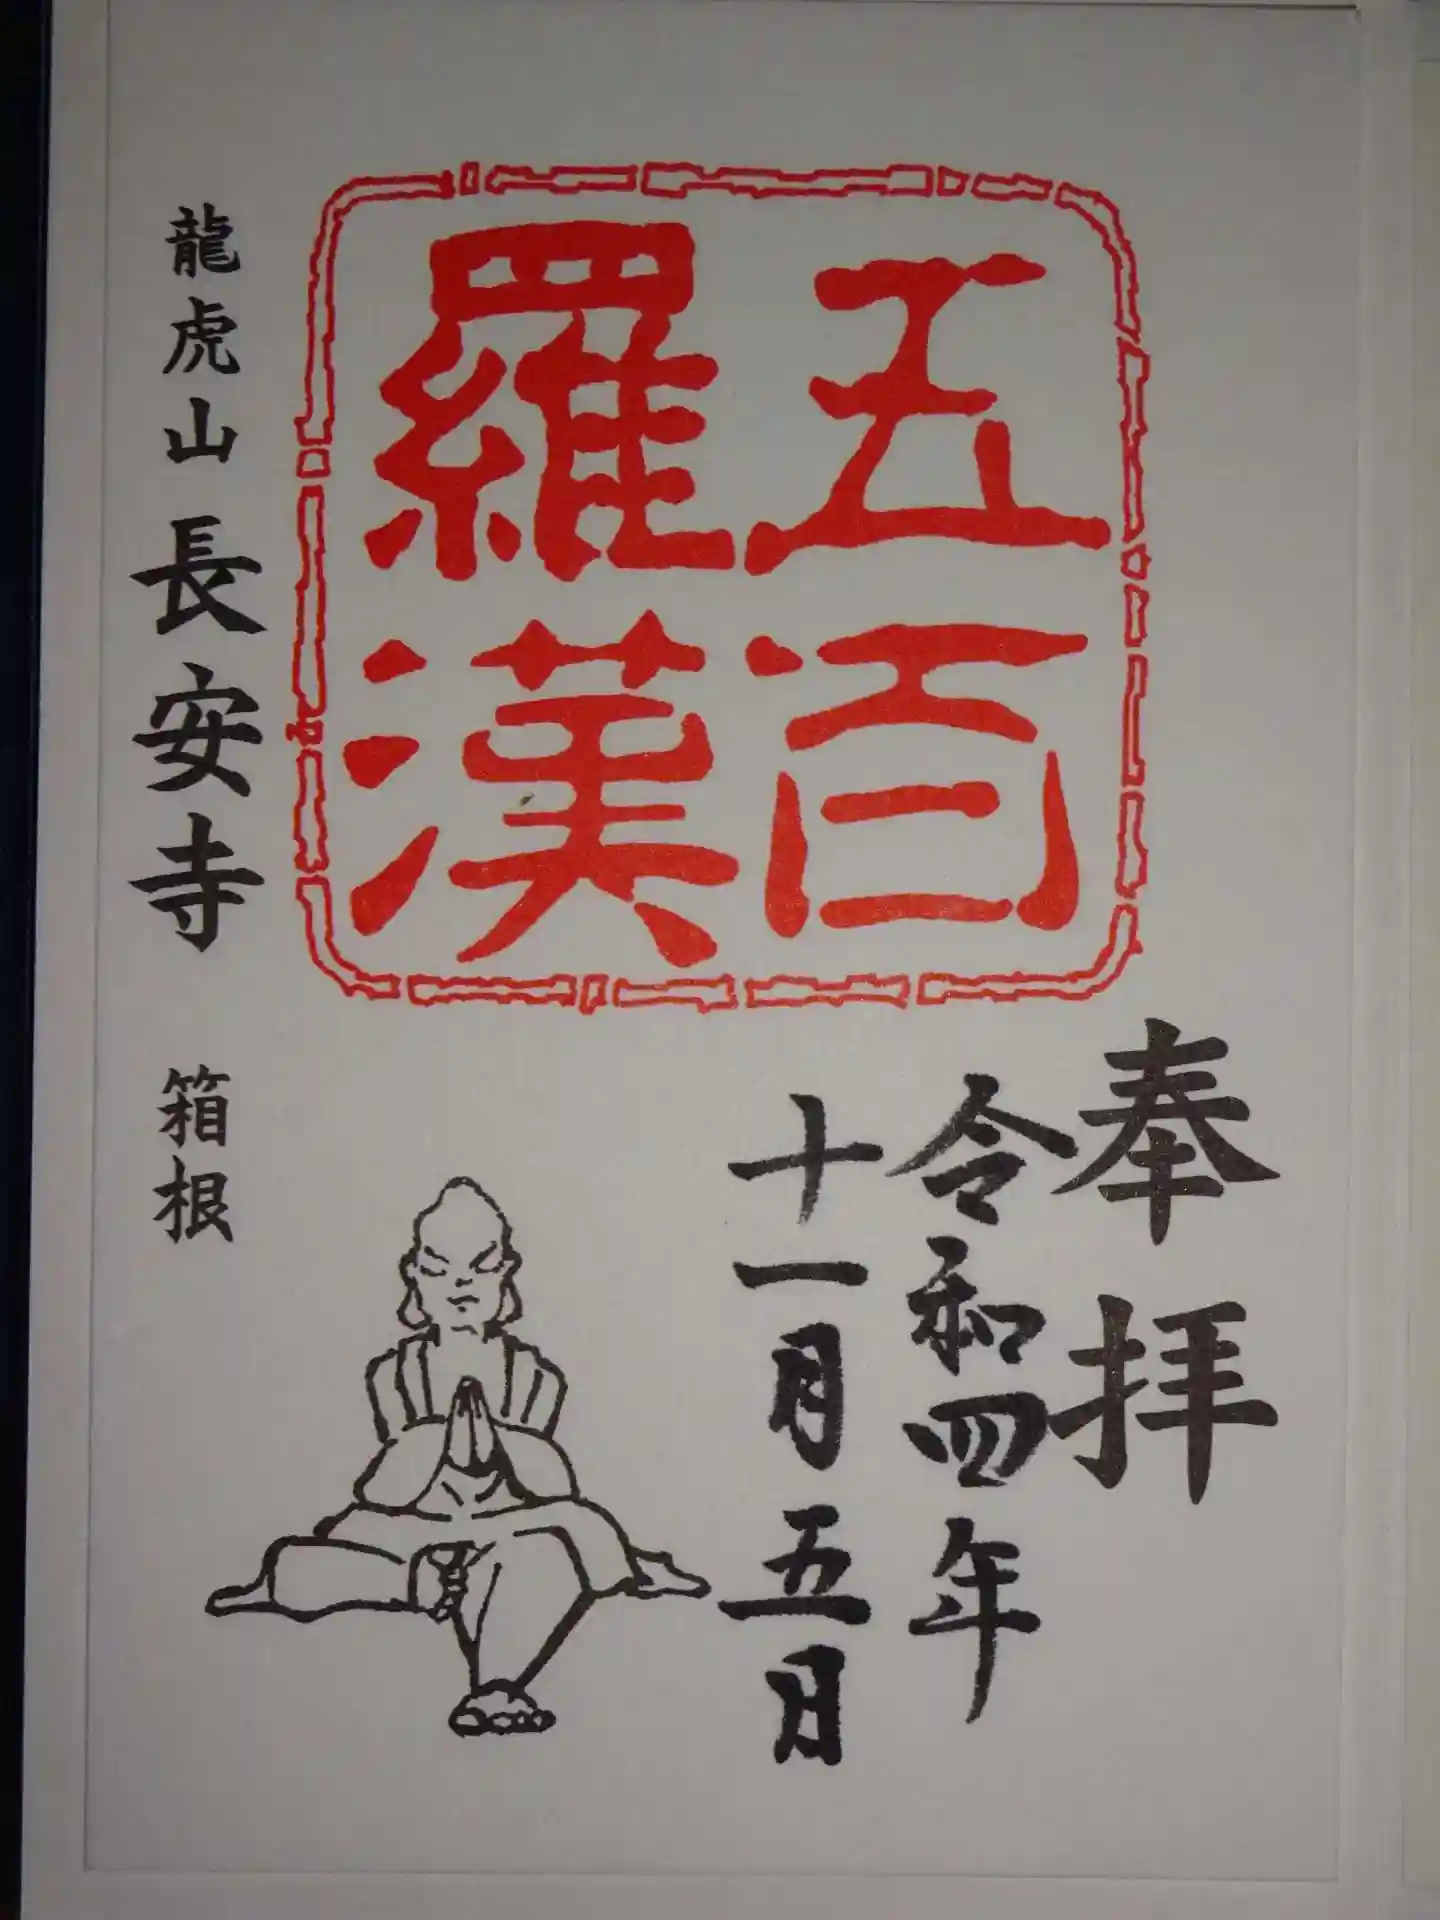 奉拝
令和四年
十一月五日
五百
羅漢
龍虎山 長安寺 箱根